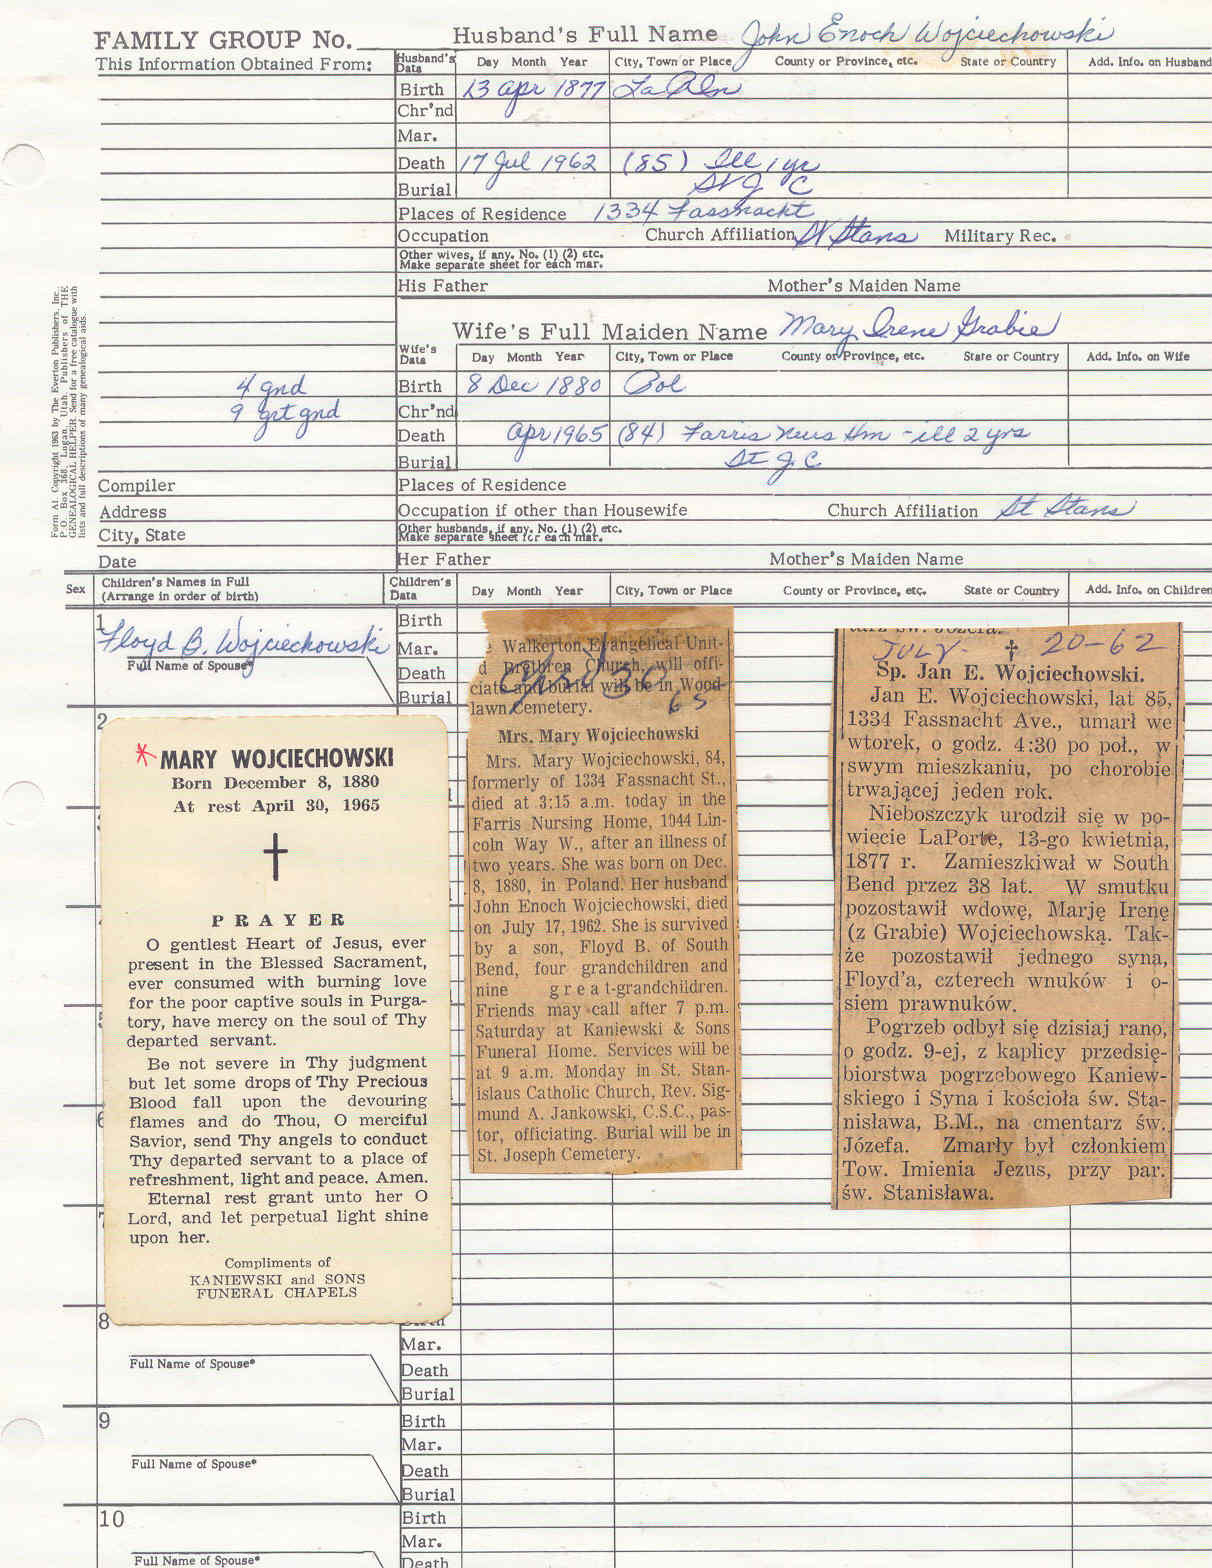 FAMILY GROUP No.
Husband's Full Name John Enoch Wojciechowski
This Information Obtained From:
Husband's Data Day Month Year City, Town or Place County or Province, etc. State or Country Add. Info. on Husband
Birth 13 Apr 1877 La
Chr'nd
Mar.
Death 17 Jul 1962 (85) Ill 1 yr
Burial St J C
Places of Residence 1334 Fassnacht
Occupation Church Affiliation St Stans Military Rec.
Other wives, if any. No. (1) (2) etc.
Make separate sheet for each mar.
His Father Mother's Maiden Name
Wife's Full Maiden Name Mary Irene Grabie
Wife's Data Day Month Year City, Town or Place County or Province, etc. State or Country Add. Info. on Wife
4 gnd
9 grt gnd
Birth 8 Dec 1880 Pol
Chr'nd
Death Apr 1965 (84) Farris Nurs Hm - ill 2 yrs
Burial St J C
Compiler
Places of Residence
Address
Occupation if other than Housewife Church Affiliation St Stans
City, State
Other husbands, if any. No. (1) (2) etc.
Make separate sheet for each mar.
Date
Her Father Mother's Maiden Name
Form A1. Copyright 1963 by The Everton Publishers, Inc.
P.O. Box 368, Logan, Utah. Publishers of THE
GENEALOGICAL HELPER. Send for a free catalogue with
lists and full descriptions of many genealogical aids.
Sex Children's Names in Full
(Arrange in order of birth)
Children's Data Day Month Year City, Town or Place County or Province, etc. State or Country Add. Info. on Children
1
Floyd B. Wojciechowski
Full Name of Spouse*
Birth
Mar.
Death
Burial
2
* MARY WOJCIECHOWSKI
Born December 8, 1880
At rest April 30, 1965
PRAYER
O gentlest Heart of Jesus, ever
present in the Blessed Sacrament,
ever consumed with burning love
for the poor captive souls in Purga-
tory, have mercy on the soul of Thy
departed servant.
Be not severe in Thy judgment
but let some drops of Thy Precious
Blood fall upon the devouring
flames and do Thou, O merciful
Savior, send Thy angels to conduct
Thy departed servant to a place of
refreshment, light and peace. Amen.
Eternal rest grant unto her O
Lord, and let perpetual light shine
upon her.
Compliments of
KANIEWSKI and SONS
FUNERAL CHAPELS
Walkerton Evangelical Unit-
d Brethren Church, will offi-
ciate and burial will be in Wood-
lawn Cemetery.
Apr 30
65
Mrs. Mary Wojciechowski
Mrs. Mary Wojciechowski, 84,
formerly of 1334 Fassnacht St.,
died at 3:15 a.m. today in the
Farris Nursing Home, 1944 Lin-
coln Way W., after an illness of
two years. She was born on Dec.
8, 1880, in Poland. Her husband
John Enoch Wojciechowski, died
on July 17, 1962. She is survived
by a son, Floyd B. of South
Bend, four grandchildren and
nine great-grandchildren.
Friends may call after 7 p.m.
Saturday at Kaniewski & Sons
Funeral Home. Services will be
at 9 a.m. Monday in St. Stan-
islaus Catholic Church, Rev. Sig-
mund A. Jankowski, C.S.C., pas-
tor, officiating. Burial will be in
St. Joseph Cemetery.
JULY- 20-62
Sp. Jan E. Wojciechowski.
Jan E. Wojciechowski, lat 85,
1334 Fassnacht Ave., umarł we
wtorek, o godz. 4:30 po poł., w
swym mieszkaniu, po chorobie
trwającej jeden rok.
Nieboszczyk urodził się w po-
więcie LaPorte, 13-go kwietnia,
1877 r. Zamieszkiwał w South
Bend przez 38 lat. W smutku
pozostawił wdowę, Marję Irenę
(z Grabie) Wojciechowską. Tak-
że pozostawił jednego syna,
Floyd'a, czterech wnuków i o-
siem prawnuków.
Pogrzeb odbył się dzisiaj rano,
o godz. 9-ej, z kaplicy przedsię-
biorstwa pogrzebowego Kaniew-
skiego i Syna i kościoła św. Sta-
nisława, B.M., na cmentarz św.
Józefa. Zmarły był członkiem
Tow. Imienia Jezus, przy par.
św. Stanisława.
8
Mar.
Full Name of Spouse*
Death
Burial
9
Birth
Mar.
Full Name of Spouse*
Death
Burial
10
Birth
Mar.
Full Name of Spouse*
Death